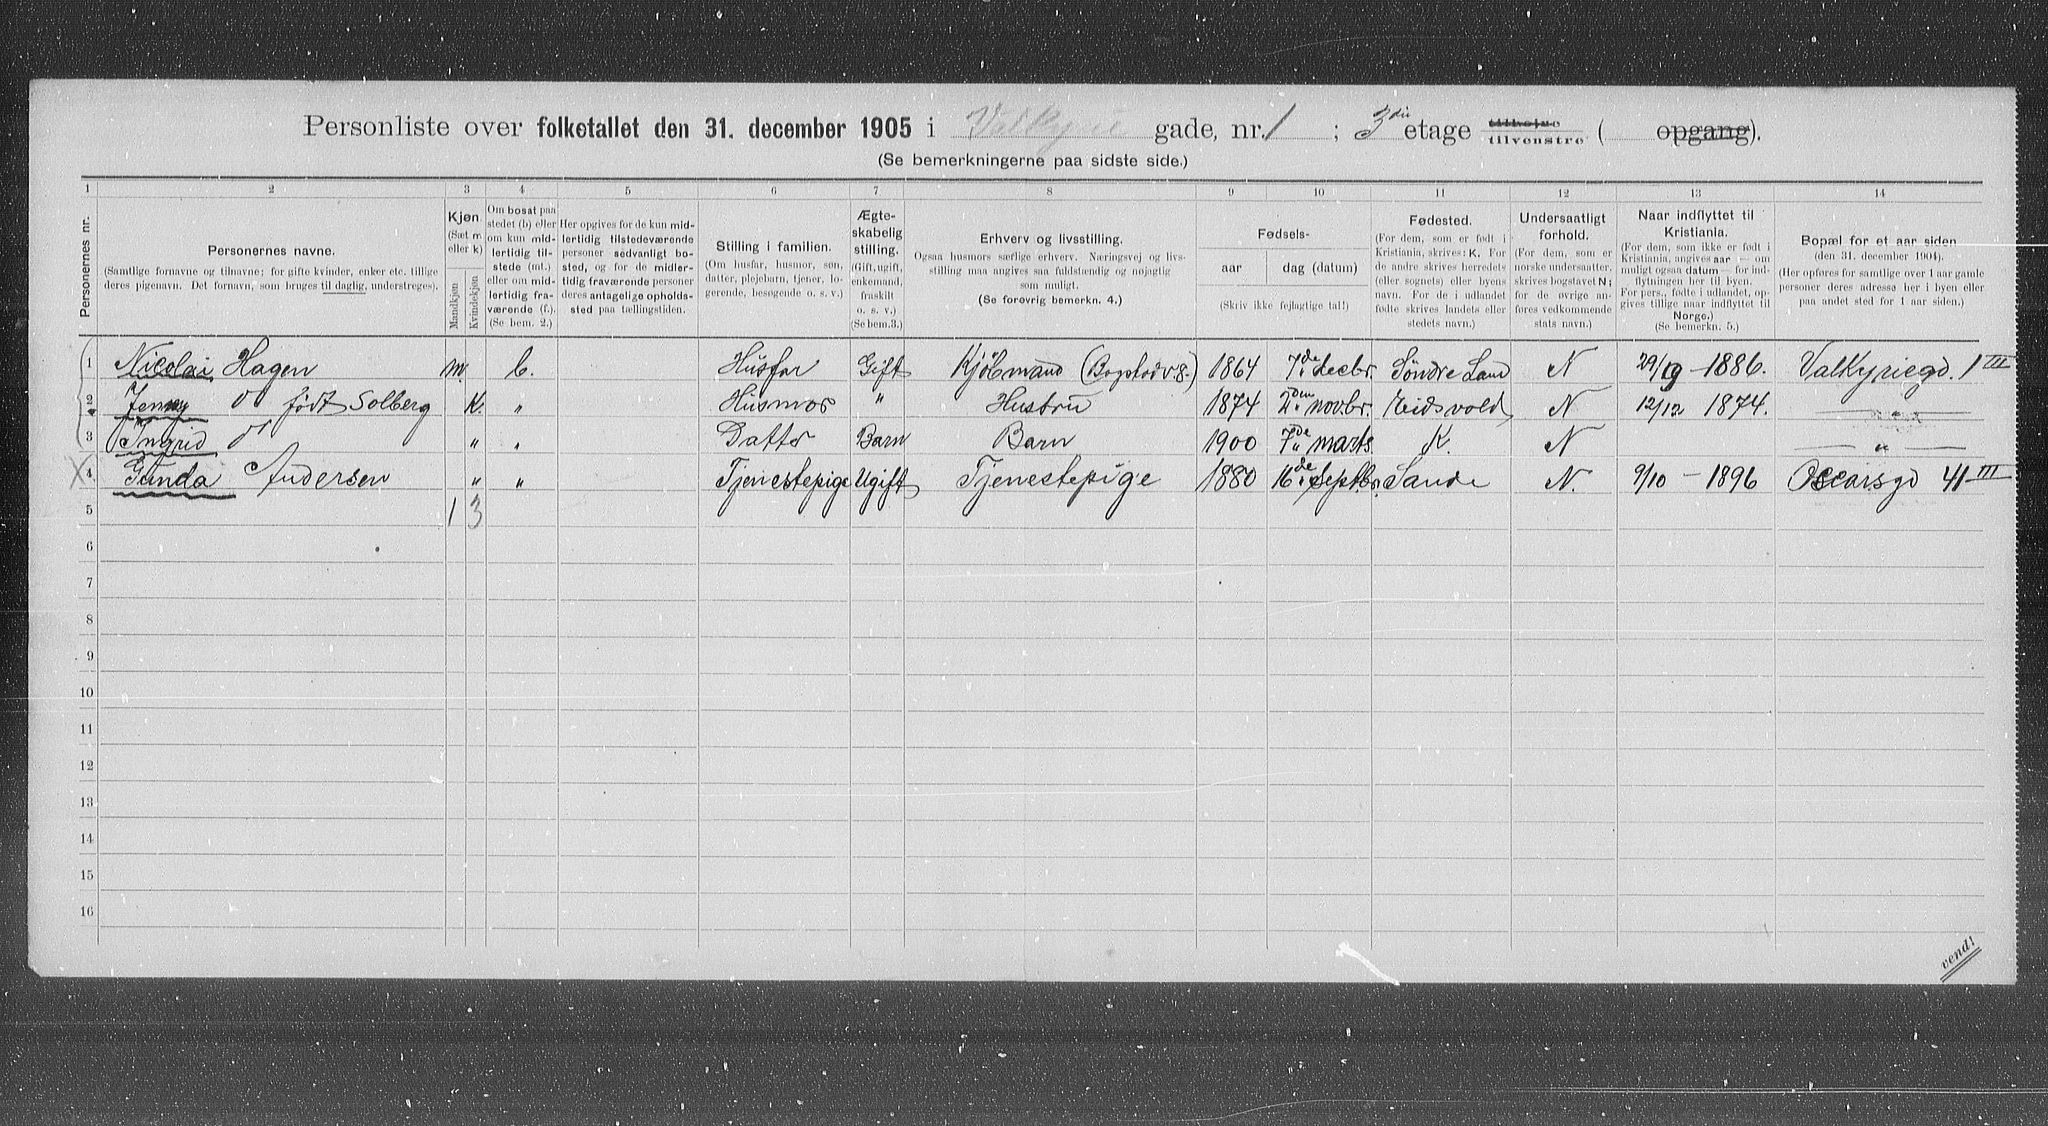 Personliste over folketallet den 31. december 1905 i Valkyrie gade, nr. 1 ; 3die etage tilhøjre tilvenstre ( opgang).
(Se bemerkningerne paa sidste side.)
1 2 3 4 5 6 7 8 9 10 11 12 13 14
Personernes nr.
Personernes navne.
(Samtlige fornavne og tilnavne; for gifte kvinder, enker etc. tillige
deres pigenavn. Det fornavn, som bruges til daglig, understreges).
Kjøn
(Sæt m
eller k)
Mandkjøn
Kvindekjøn
Om bosat paa
stedet (b) eller
om kun mid-
lertidig til-
stede (mt.)
eller om mid-
lertidig fra-
værende (f.).
(Se bem. 2.)
Her opgives for de kun mid-
lertidig tilstedeværende
personer sedvanligt bo-
sted, og for de midler-
tidig fraværende personer
deres antagelige opholds-
sted paa tællingstiden.
Stilling i familien.
(Om husfar, husmor, søn,
datter, plejebarn, tjener, lo-
gerende, besøgende o. s. v.)
Ægte-
skabelig
stilling.
(Gift, ugift,
enkemand,
fraskilt
o. s. v.)
(Se bem.3.)
Erhverv og livsstilling.
Ogsaa husmors særlige erhverv. Næringsvej og livs-
stilling maa angives saa fuldstændig og nøjagtig
som muligt.
(Se forøvrig bemerkn. 4.)
Fødsels-
aar dag (datum)
(Skriv ikke fejlagtige tal!)
Fødested.
(For dem, som er født i
Kristiania, skrives: K. For
de andre skrives herredets
(eller sognets) eller byens
navn. For de i udlandet
fødte skrives landets eller
stedets navn.)
Undersaatligt
forhold.
(For dem, som er
norske undersaatter,
skrives bogstavet N;
for de øvrige an-
føres vedkommende
stats navn.)
Naar indflyttet til
Kristiania.
(For dem, som ikke er født i
Kristiania, angives aar — om
muligt ogsaa datum — for ind-
flytningen her til byen.
For pers., fødte i udlandet, op-
gives tillige naar indflyttet til
Norge.)
(Se bemerkn. 5.)
Bopæl for et aar siden
(den 31. december 1904).
(Her opføres for samtlige over 1 aar gamle
personer deres adresse her i byen eller
paa andet sted for 1 aar siden.)
1 Nicolai Hagen m. b. Husfar Gift Kjøbmand 1864 7de decbr. Søndre Land N 29/9 - 1886. Valkyriegd. 1 III
2 Jenny do født Solberg K. " Husmor " Hustru 1874 2den novbr. Eidsvold N 12/12 1874. — " —
3 Ingrid do " " Datter Barn Barn 1900 7de marts. K. N — " —
4 Gunda Andersen " " Tjenestepige Ugift Tjenestepige 1880 16de Septbr. Sande N. 9/10 - 1896 Oscarsgd 41 III
5 1 3
6
7
8
9
10
11
12
13
14
15
16
vend!